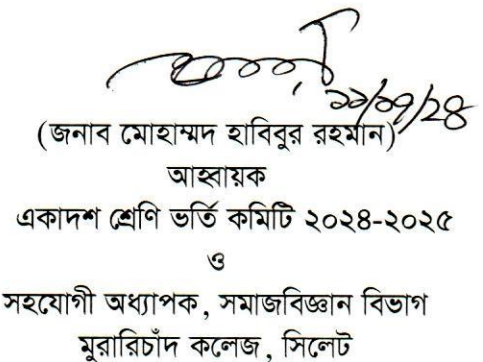 ২২/০৭/২৪
(জনাব মোহাম্মদ হাবিবুর রহমান)
আহ্বায়ক
একাদশ শ্রেণি ভর্তি কমিটি ২০২৪-২০২৫
ও
সহযোগী অধ্যাপক, সমাজবিজ্ঞান বিভাগ
মুরারিচাঁদ কলেজ, সিলেট